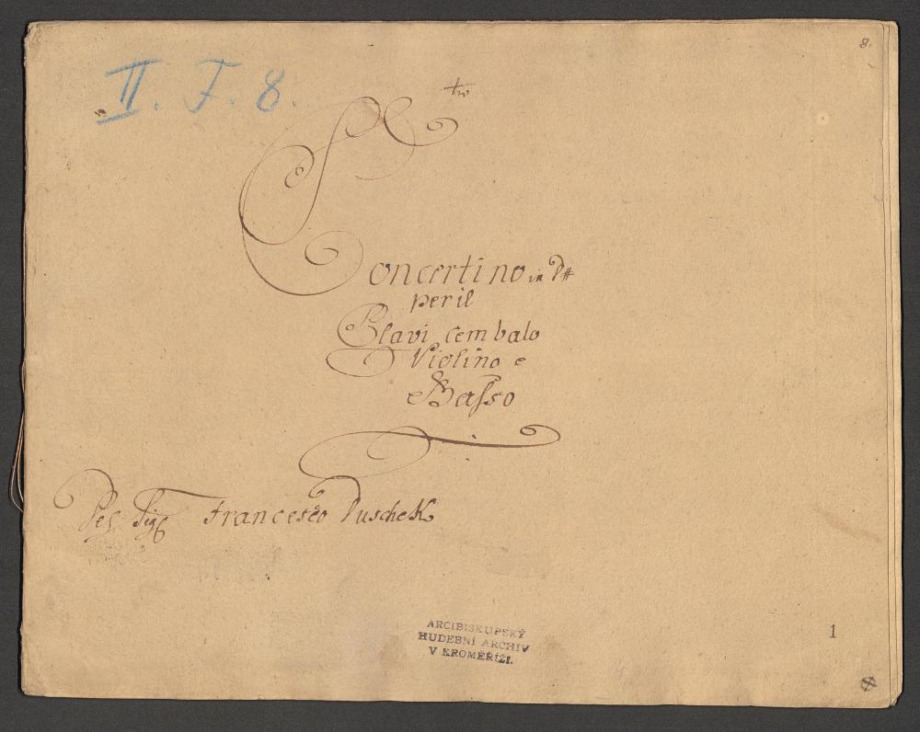 8.
II. F. 8.
Concertino in D#
per il
Clavi Cembalo
Violino e
e Basso
Del Sigr Francesco Duschek
ARCIBISKUPSKÝ
HUDEBNÍ ARCHIV
V KROMĚŘÍŽI.
1